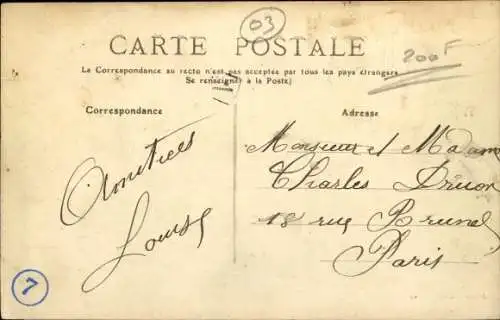 03
CARTE POSTALE
200F
La Correspondance au recto n'est pas acceptée par tous les pays étrangers
Se renseigner à la Poste)
Correspondance
Adresse
Amitiées
Louise
Monsieur et Madame
Charles Druon
18 rue Brunel
Paris
7